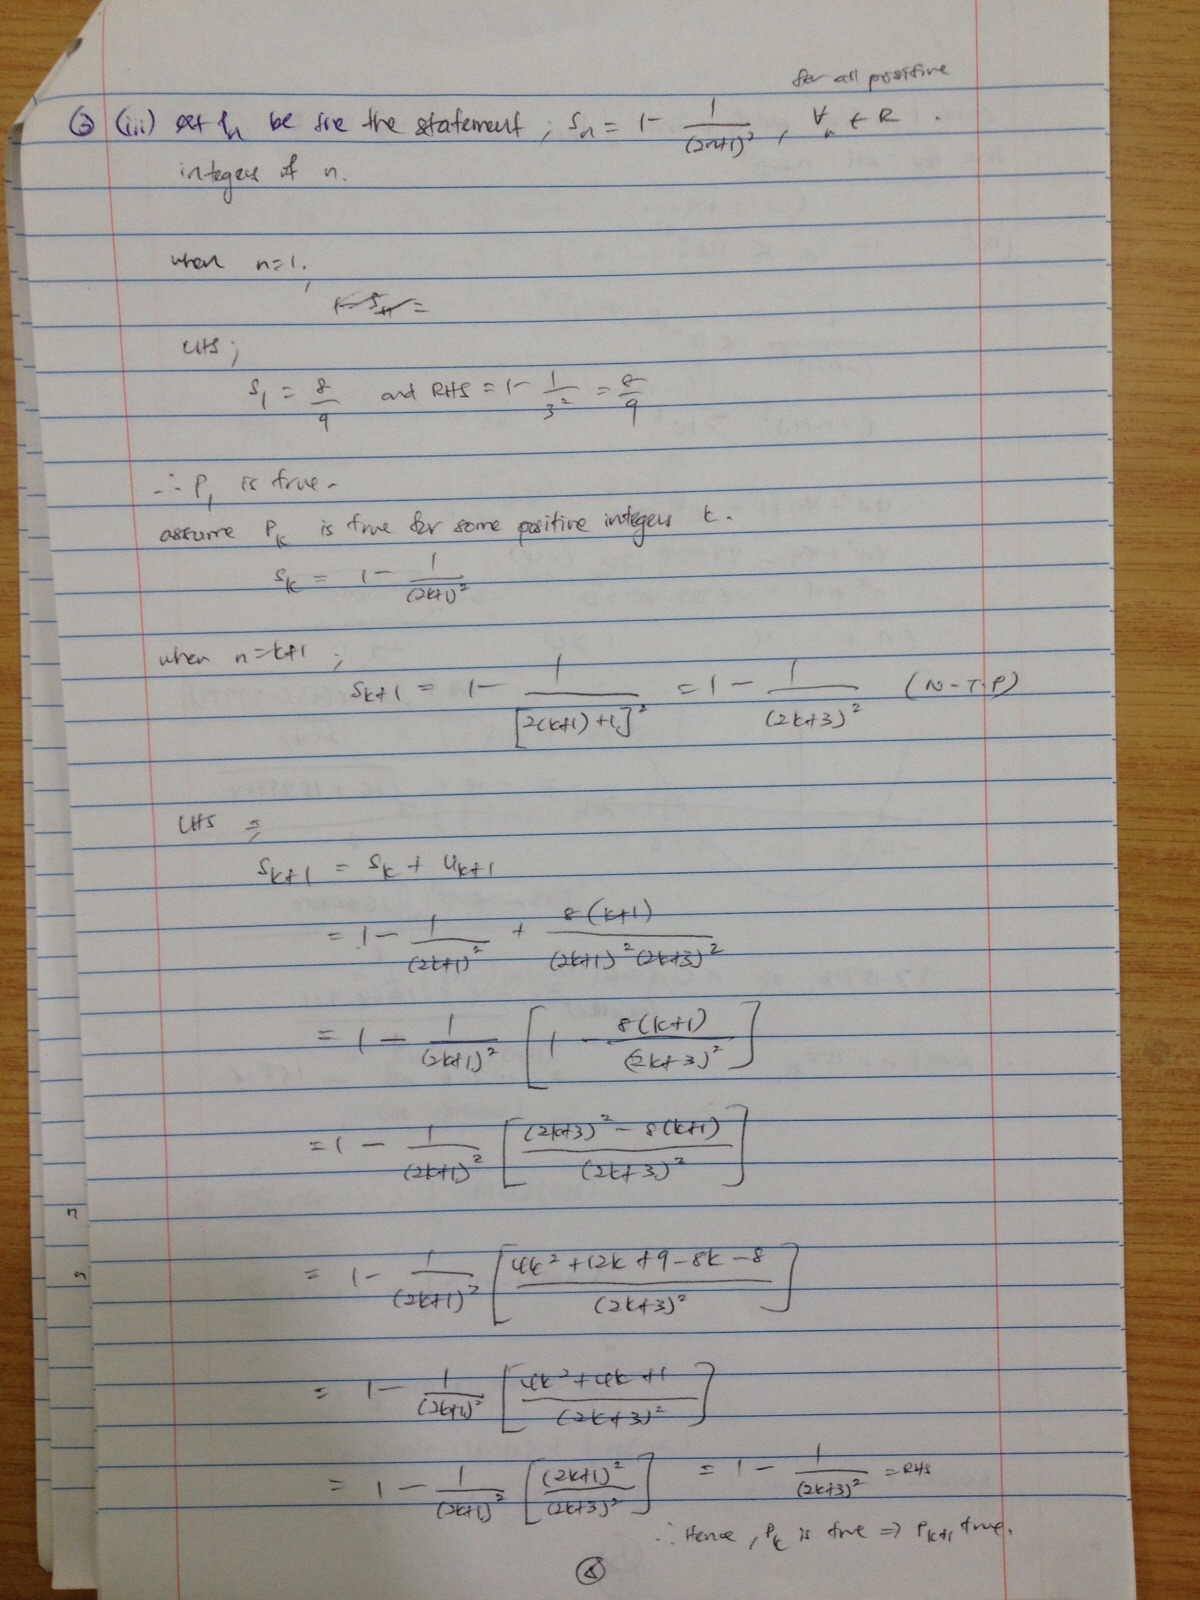 for all positive
③ (iii) Let Pn be the the statement ; Sn = 1 - 1/(2n+1)², ∀n ∈ R .
integers of n.
when n=1,
LHS ;
S₁ = 8/9 and RHS = 1 - 1/3² = 8/9
∴ P₁ is true.
assume Pk is true for some positive integers k.
Sk = 1 - 1/(2k+1)²
when n=k+1 ;
Sk+1 = 1 - 1/[2(k+1)+1]² = 1 - 1/(2k+3)² (N-T-P)
LHS =
Sk+1 = Sk + Uk+1
= 1 - 1/(2k+1)² + 8(k+1)/(2k+1)²(2k+3)²
= 1 - 1/(2k+1)² [1 - 8(k+1)/(2k+3)²]
= 1 - 1/(2k+1)² [(2k+3)² - 8(k+1)/(2k+3)²]
= 1 - 1/(2k+1)² [4k²+12k+9-8k-8/(2k+3)²]
= 1 - 1/(2k+1)² [4k²+4k+1/(2k+3)²]
= 1 - 1/(2k+1)² [(2k+1)²/(2k+3)²] = 1 - 1/(2k+3)² = RHS
∴ Hence, Pk is true ⇒ Pk+1 true.